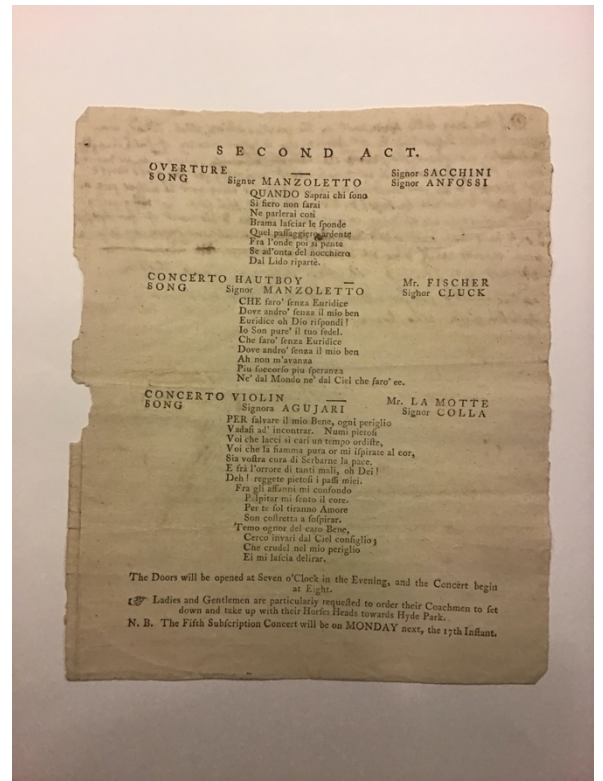 SECOND ACT.
OVERTURE — Signor SACCHINI
SONG Signor MANZOLETTO Signor ANFOSSI
QUANDO Saprai chi ſono
Si fiero non ſarai
Ne parlerai coſi
Brama laſciar le ſponde
Quel paſſaggiero ardente
Fra l'onde poi si pente
Se ad'onta del nocchiero
Dal Lido ripartè.
CONCERTO HAUTBOY — Mr. FISCHER
SONG Signor MANZOLETTO Signor CLUCK
CHE faro' ſenza Euridice
Dove andro' ſenza il mio ben
Euridice oh Dio riſpondi!
Io Son pure' il tuo fedel.
Che faro' ſenza Euridice
Dove andro' ſenza il mio ben
Ah non m'avanza
Piu ſoccorſo piu ſperanza
Ne' dal Mondo ne' dal Ciel che faro' ee.
CONCERTO VIOLIN — Mr. LA MOTTE
SONG Signora AGUJARI Signor COLLA
PER ſalvare il mio Bene, ogni periglio
Vadaſi ad' incontrar. Numi pietoſi
Voi che lacci si cari un tempo ordiſte,
Voi che la fiamma pura or mi iſpirate al cor,
Sia voſtra cura di Serbarne la pace.
E frà l'orrore di tanti mali, oh Dei!
Deh! reggete pietoſi i paſſi miei.
Fra gli affanni mi confondo
Palpitar mi ſento il core.
Per te ſol tiranno Amore
Son coſtretta a ſoſpirar.
Temo ognor del caro Bene,
Cerco invari dal Ciel conſiglio;
Che crudel nel mio periglio
Ei mi laſcia delirar.
The Doors will be opened at Seven o'Clock in the Evening, and the Concert begin
at Eight.
☞ Ladies and Gentlemen are particularly requeſted to order their Coachmen to ſet
down and take up with their Horſes Heads towards Hyde Park.
N. B. The Fifth Subſcription Concert will be on MONDAY next, the 17th Inſtant.